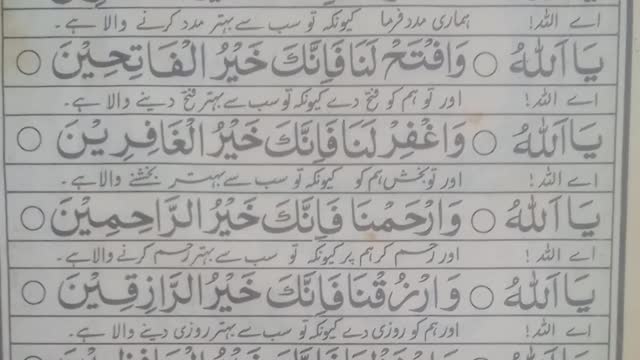 اے اللہ! ہماری مدد فرما کیونکہ تو سب سے بہتر مدد کرنے والا ہے۔
يَا اَللّٰهُ ○ وَافْتَحْ لَنَا فَاِنَّكَ خَيْرُ الْفَاتِحِيْنَ ○
اے اللہ! اور تو ہم کو فتح دے کیونکہ تو سب سے بہتر فتح دینے والا ہے۔
يَا اَللّٰهُ ○ وَاغْفِرْ لَنَا فَاِنَّكَ خَيْرُ الْغَافِرِيْنَ ○
اے اللہ! اور تو بخش ہم کو کیونکہ تو سب سے بہتر بخشنے والا ہے۔
يَا اَللّٰهُ ○ وَارْحَمْنَا فَاِنَّكَ خَيْرُ الرَّاحِمِيْنَ ○
اے اللہ! اور رحم کر ہم پر کیونکہ تو سب سے بہتر رحم کرنے والا ہے۔
يَا اَللّٰهُ ○ وَارْزُقْنَا فَاِنَّكَ خَيْرُ الرَّازِقِيْنَ ○
اے اللہ! اور ہم کو روزی دے کیونکہ تو سب سے بہتر روزی دینے والا ہے۔